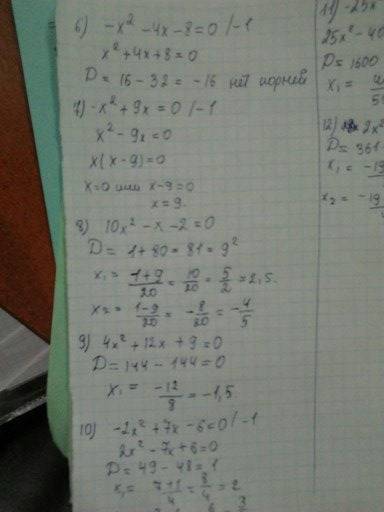 6) -x² - 4x - 8 = 0 /-1
x² + 4x + 8 = 0
D = 16 - 32 = -16 нет корней
7) -x² + 9x = 0 /-1
x² - 9x = 0
x(x - 9) = 0
x = 0 или x - 9 = 0
x = 9.
8) 10x² - x - 2 = 0
D = 1 + 80 = 81 = 9²
x₁ = (1+9)/20 = 10/20 = 5/2 = 2,5.
x₂ = (1-9)/20 = -8/20 = -4/5
9) 4x² + 12x + 9 = 0
D = 144 - 144 = 0
x₁ = -12/8 = -1,5.
10) -2x² + 7x - 6 = 0 /-1
2x² - 7x + 6 = 0
D = 49 - 48 = 1
x₁ = (7+1)/4 = 8/4 = 2
11) -25x
25x² - 40
D = 1600
x₁ =
12) 2x²
D = 361
x₁ = -19
x₂ = -19